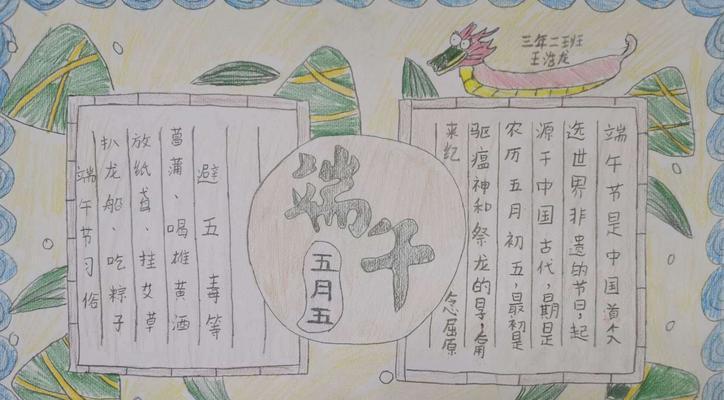 三年二班
王治龙
端午
五月五
端午节是中国首个入
选世界非遗的节日,起
源于中国古代,日期是
农历五月初五,最初是
驱瘟神和祭龙的日子,后用
来纪念屈原
端午节习俗
扒龙船、吃粽子
放纸鸢、挂艾草
菖蒲、喝雄黄酒
避五毒等